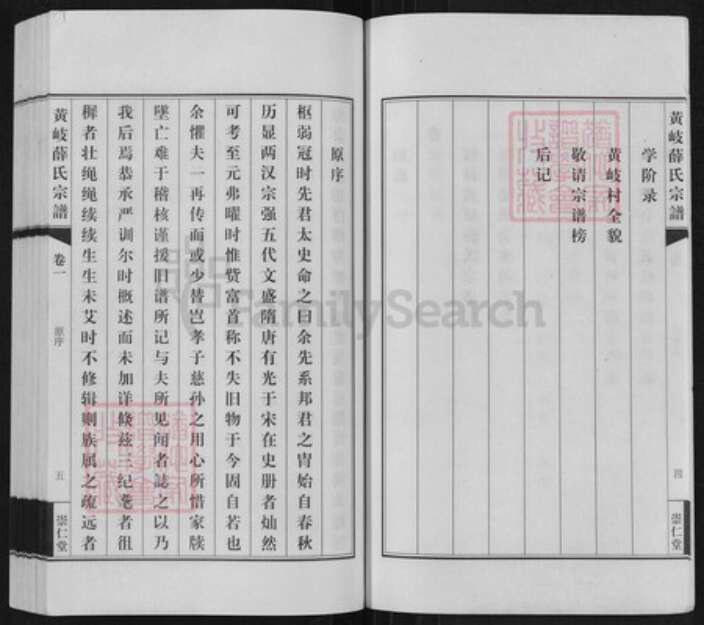 黄岐薛氏宗譜
四
崇仁堂
学阶录
黄岐村全貌
敬请宗谱榜
后记
原序
枢弱冠时先君太史命之曰余先系邦君之胄始自春秋
历显两汉宗强五代文盛隋唐有光于宋在史册者灿然
可考至元弗曜时惟赀富首称不失旧物于今固自若也
余惧夫一再传而或少替岂孝子慈孙之用心所惜家牍
坠亡难于稽核谨援旧谱所记与夫所见闻者誌之以乃
我后焉恭承严训尔时概述而未加详倏兹三纪耄者徂
稺者壮绳绳续续生生未艾时不修辑则族属之疏远者
黄岐薛氏宗譜
卷一
原序
五
崇仁堂
FamilySearch